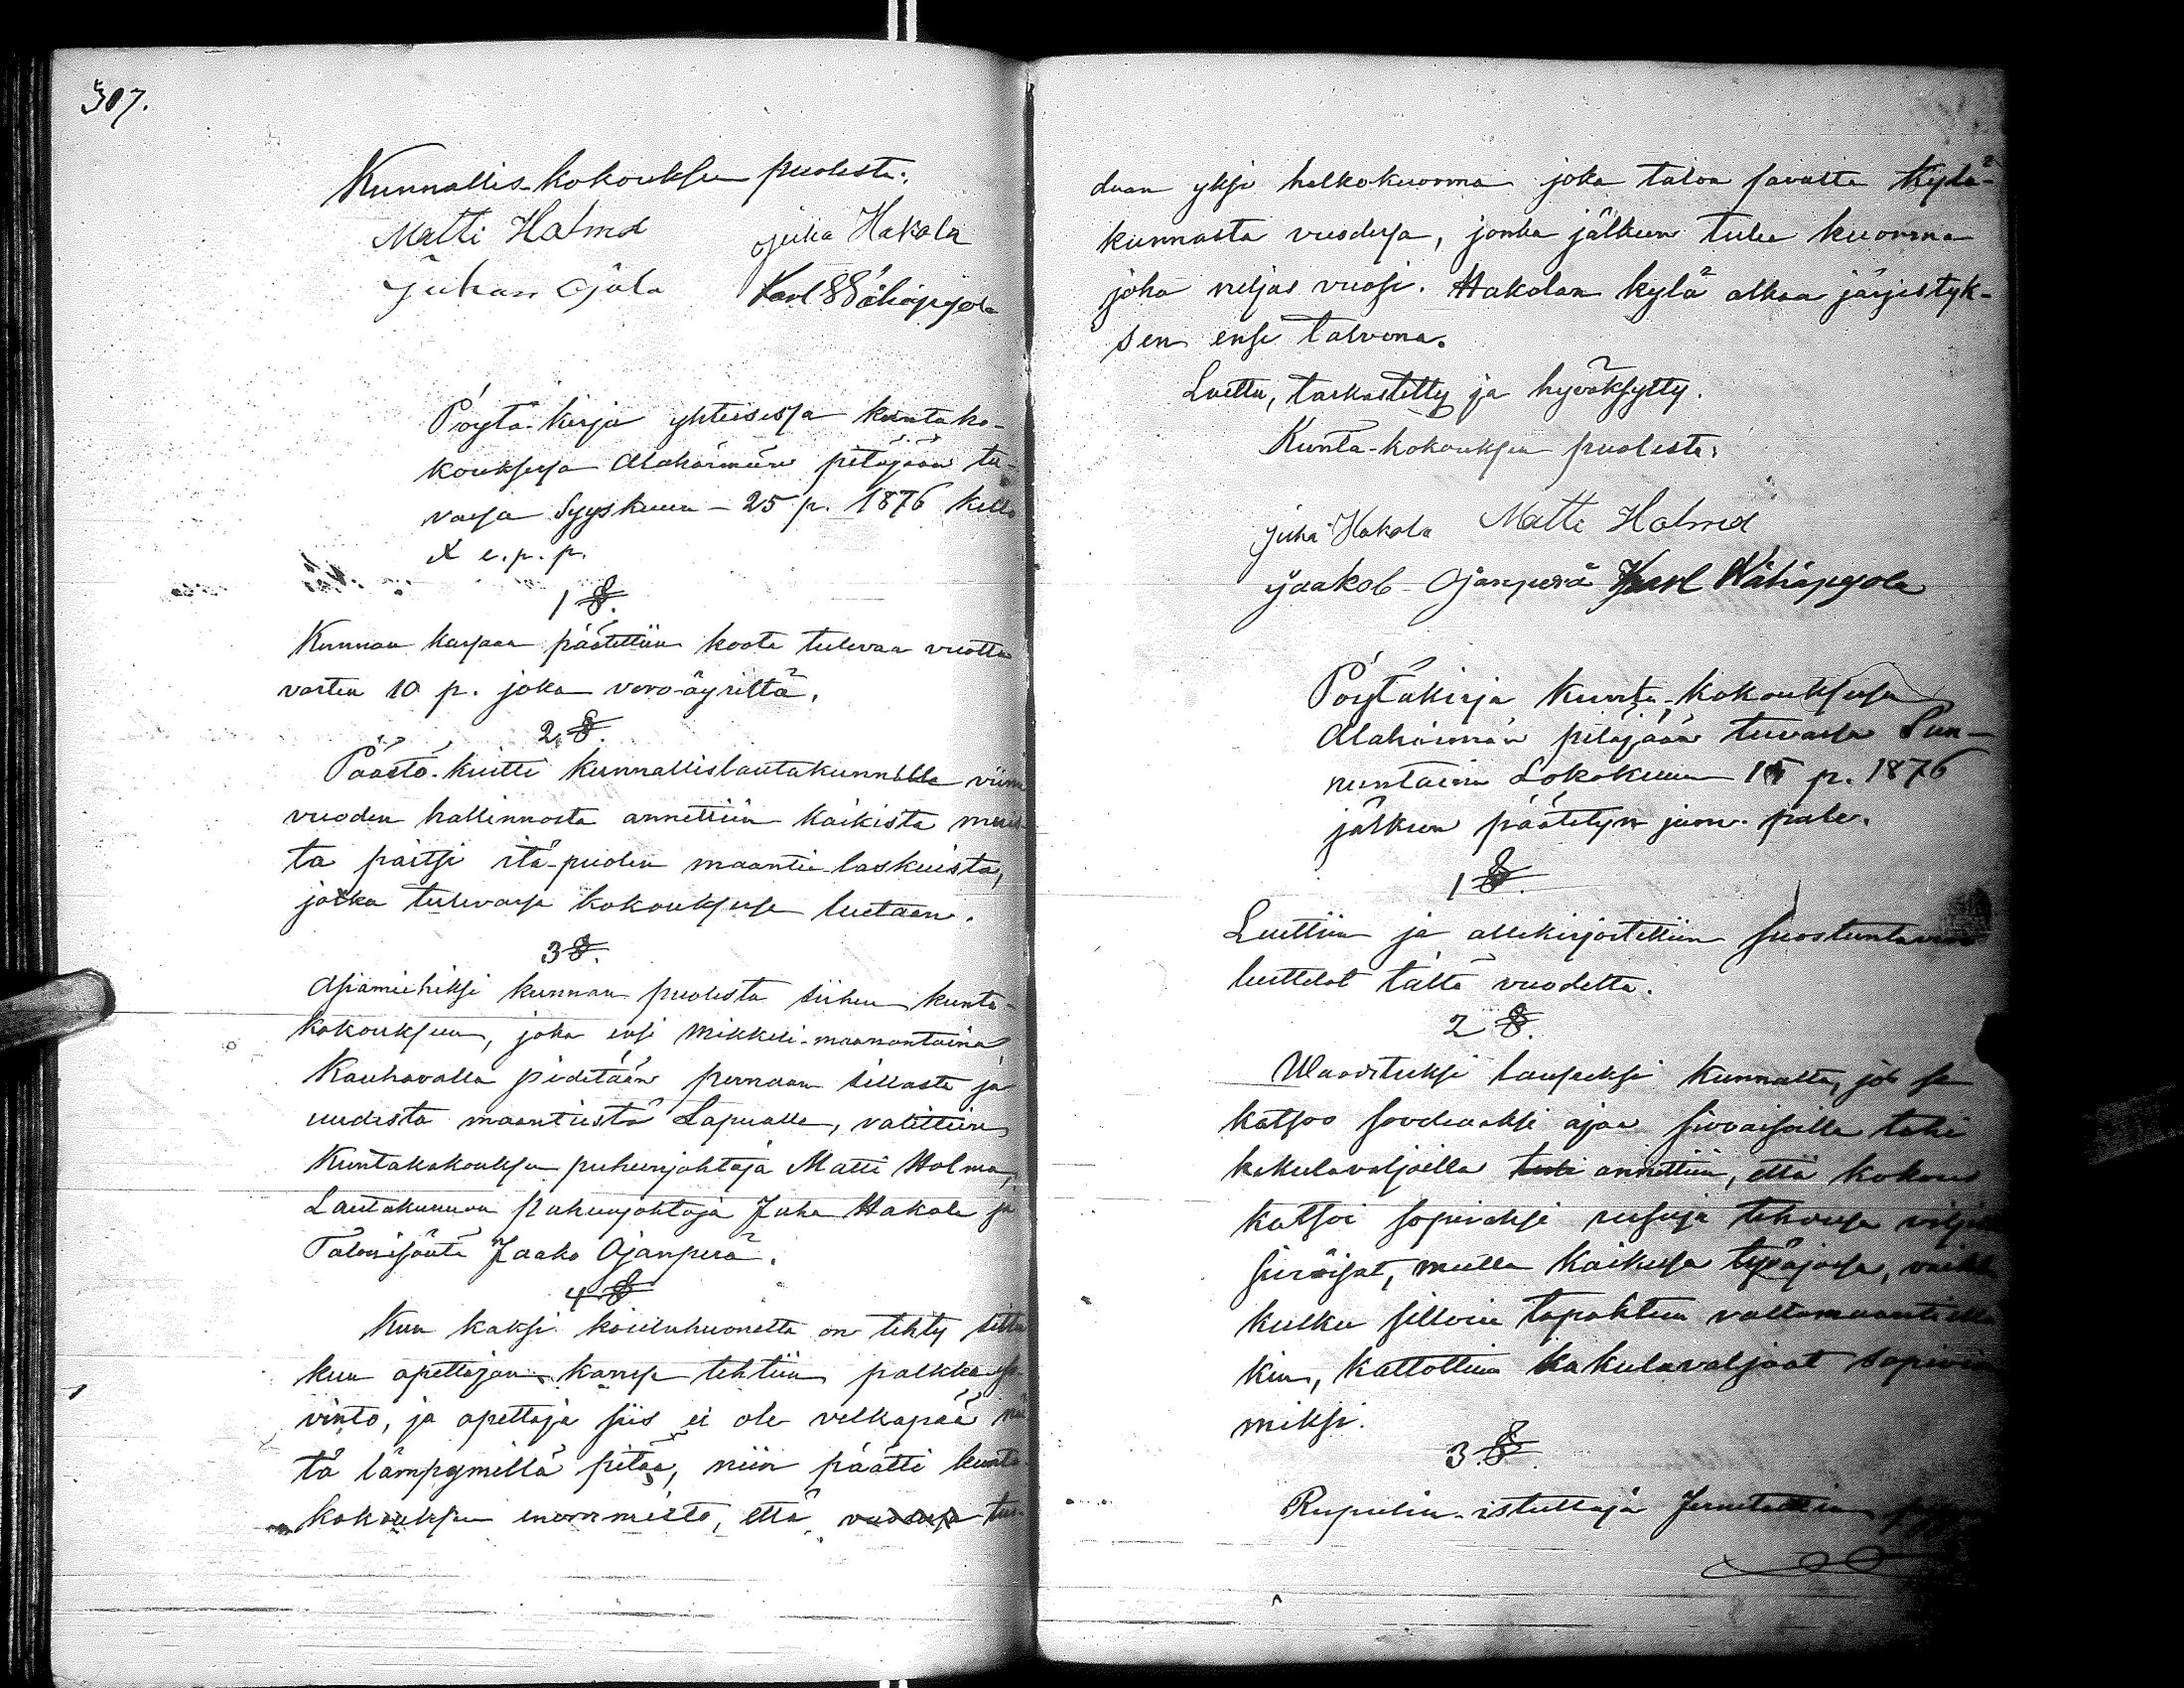 307.
Kunnallis-kokouksen puolesta:
Matti Holma Juha Hakola
Juhan Ojala Karl Wähäpesola
Pöytä-kirja yhteisessä kuntako-
kouksessa Alahärmän pitäjään tu-
vassa Syyskuun 25 p. 1876 kello
X e.p.p.
1 §.
Kunnan kassaan päätettiin koota tulevaa vuotta
varten 10 p. joka vero-äyriltä.
2 §.
Päästö-kuitti kunnallislautakunnalle viime
vuoden hallinnosta annettiin kaikista muis-
ta paitsi itä-puolen maantie-laskuista,
jotka tulevassa kokouksessa luetaan.
3 §.
Asiamiehiksi kunnan puolesta siihen kunta-
kokoukseen, joka ensi Mikkeli-maanantaina
Kauhavalla pidetään Purnaan sillasta ja
uudesta maantiestä Lapualle, valittiin
Kuntakokouksen puheenjohtaja Matti Holma,
Lautakunnan puheenjohtaja Juha Hakola ja
Talonisäntä Jaako Ojanperä.
4 §
Kun kaksi kouluhuonetta on tehty sitte
kun opettajan kanssa tehtiin palkka-so-
vinto, ja opettaja siis ei ole velkapää nii-
tä lämpymillä pitää, niin päätti kunta-
kokouksen enemmistö, että vuodessa tuo-
daan yksi halkokuorma joka talon savulta kylä-
kunnasta vuodessa, jonka jälkeen tulee kuorma
joka neljäs vuosi. Hakolan kylä alkaa järjestyk-
sen ensi talvena.
Luettu, tarkastettu ja hyväksytty.
Kunta-kokouksen puolesta:
Juha Hakola Matti Holma
Jaakob Ojanperä Karl Wähäpesola
Pöytäkirja Kunta-kokouksessa
Alahärmän pitäjään tuvassa Sun-
nuntaina Lokakuun 15 p. 1876
jälkeen päätetyn jum. palv.
1 §.
Luettiin ja allekirjoitettiin suostuntavero
luettelot tältä vuodelta.
2 §.
Waadituksi lauseeksi kunnalta, jos se
katsoo soveliaaksi ajaa sivoaisoilla tahi
kakulavaljailla tuli annettiin, että kokous
katsoi sopivaksi reessä tehdessä
sivoisat, mutta kaikessa työajossa, vaikka
kulku silloin tapahtuu valtamaantiellä
kin, kattottiin kakulavaljaat sopivim
miksi.
3 §.
Rupulin-istuttaja